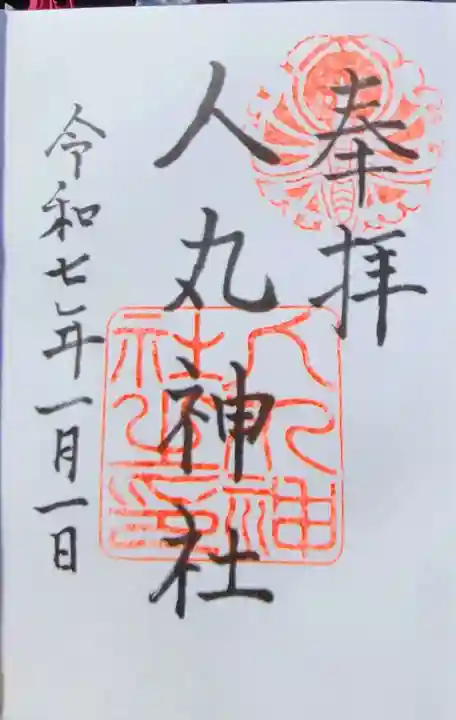 奉拝
人丸神社
人丸神社之印
令和七年一月一日